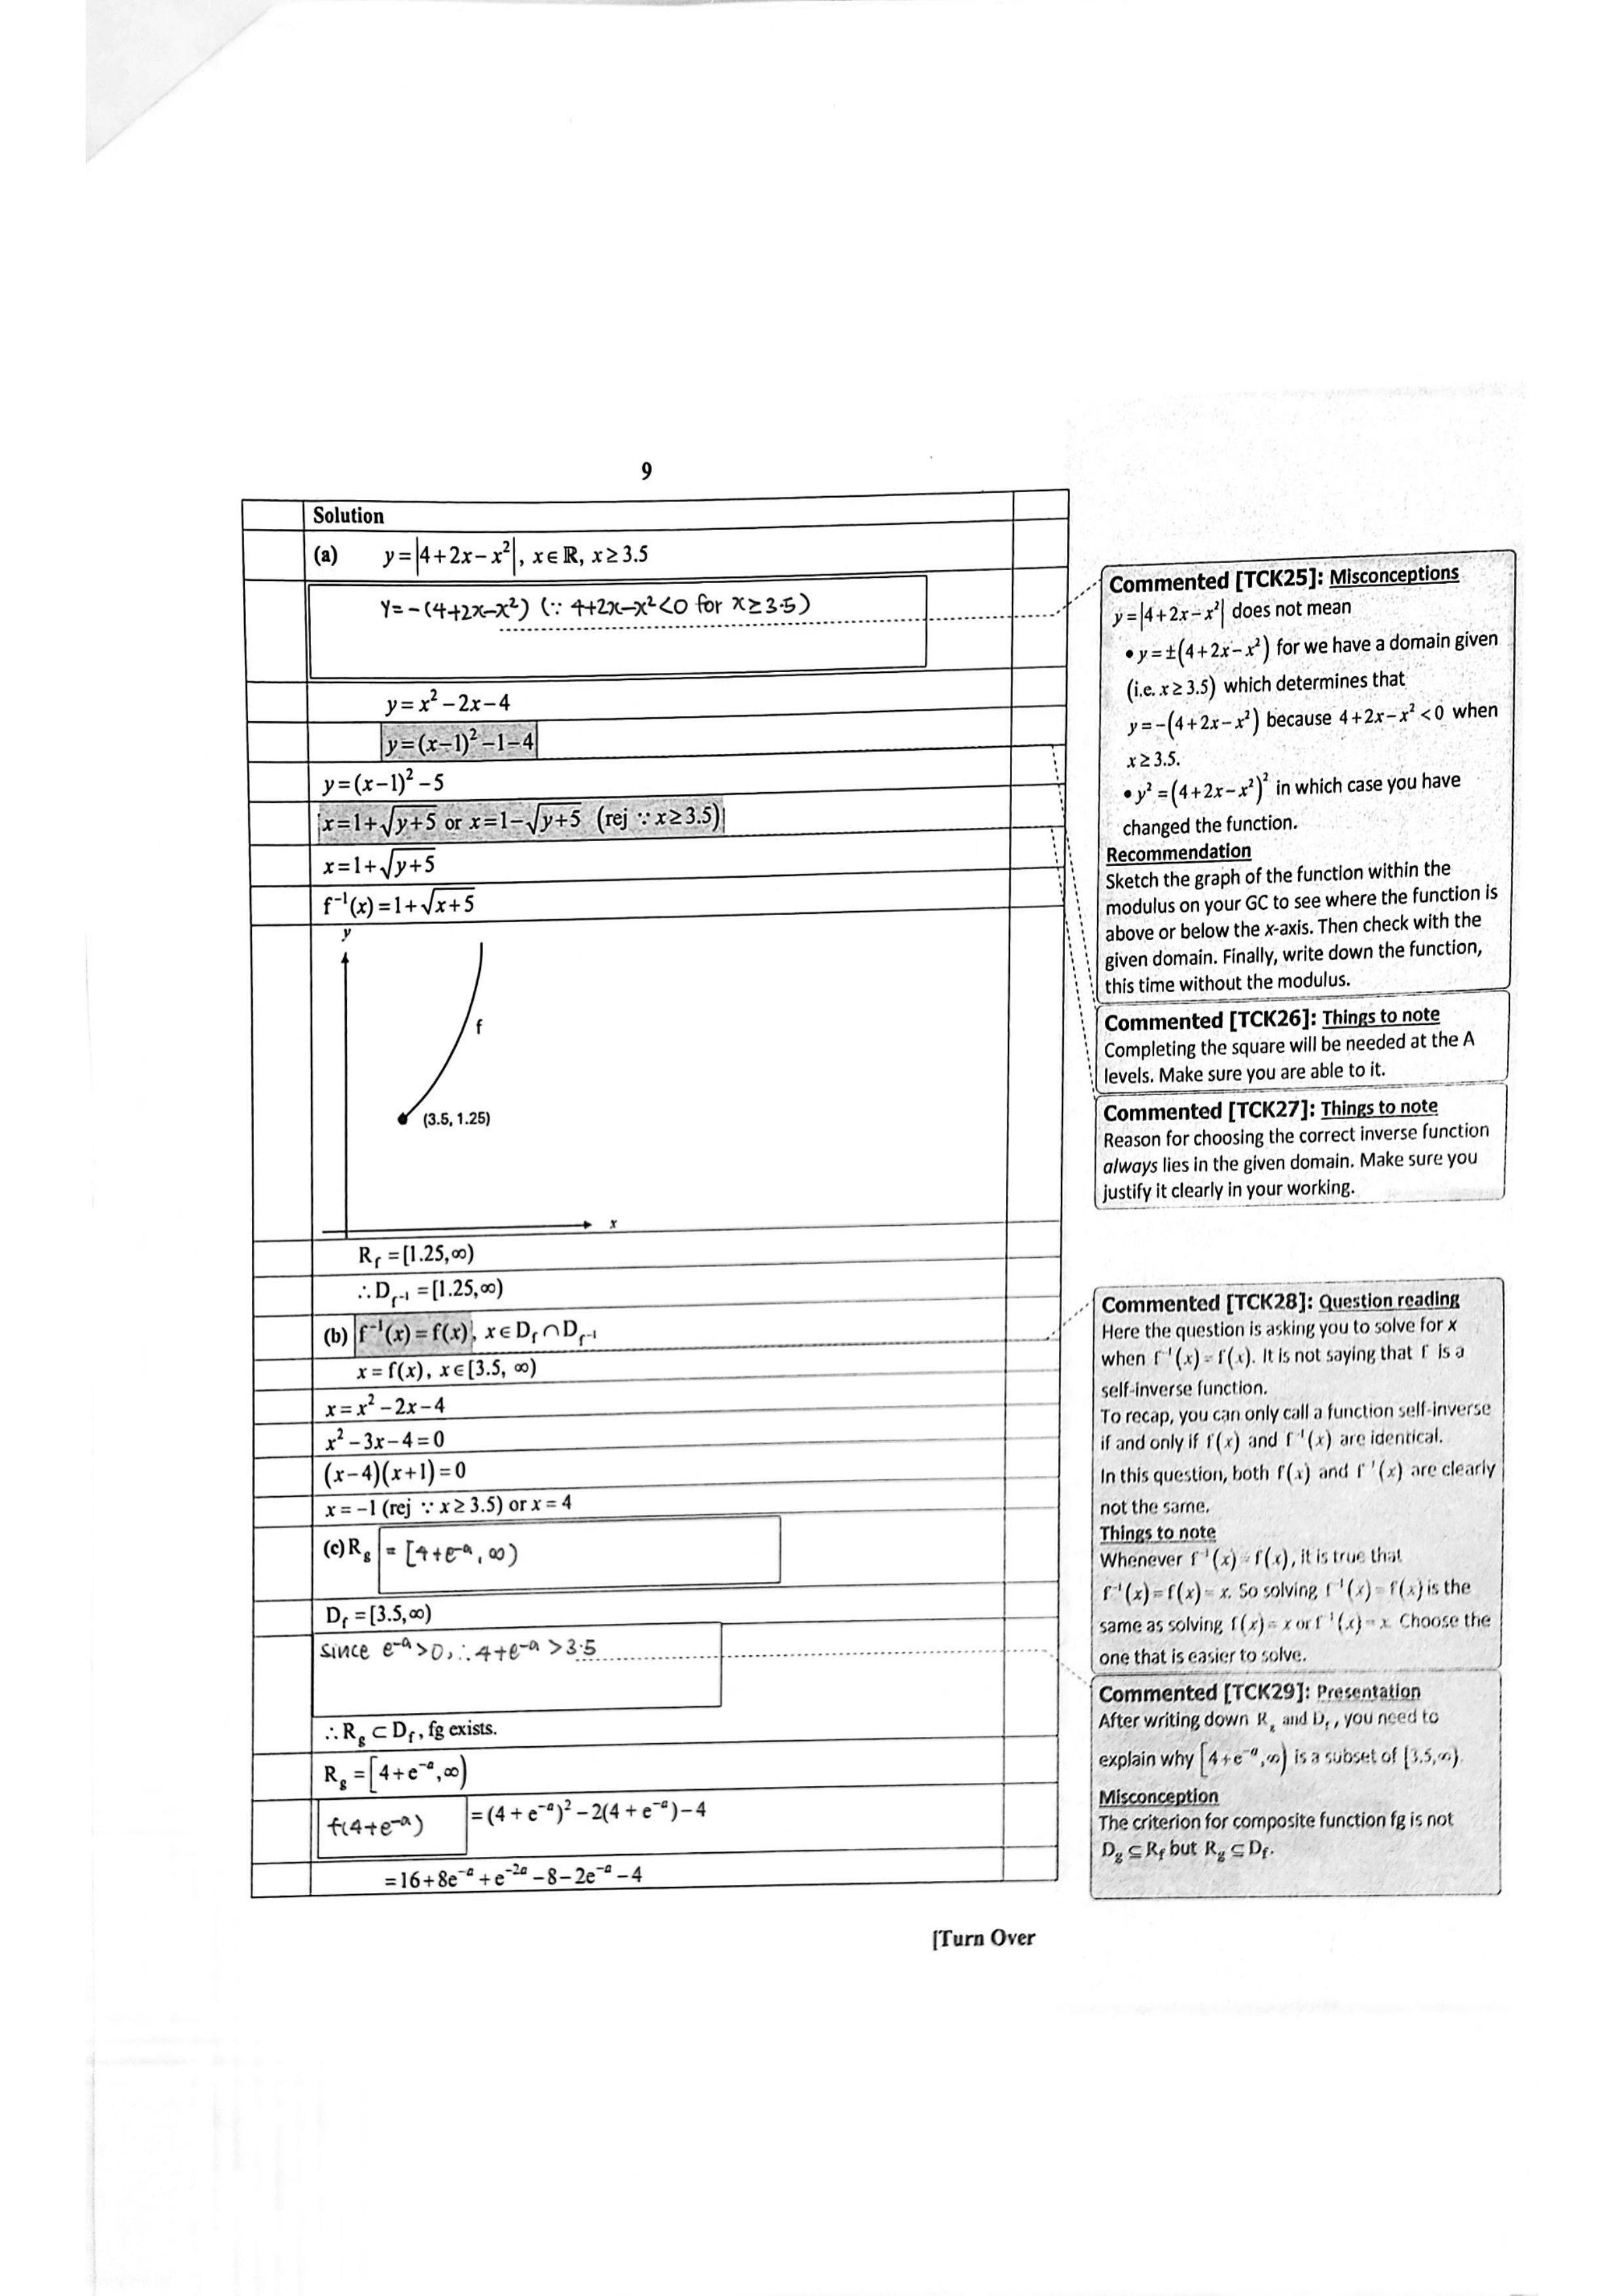 9
Solution
(a) y=|4+2x−x²|, x∈ℝ, x≥3.5
y=−(4+2x−x²) (∵ 4+2x−x²<0 for x≥3.5)
y=x²−2x−4
y=(x−1)²−1−4
y=(x−1)²−5
x=1+√(y+5) or x=1−√(y+5) (rej ∵ x≥3.5)
x=1+√(y+5)
f⁻¹(x)=1+√(x+5)
y
f
(3.5, 1.25)
x
R_f =[1.25,∞)
∴D_f⁻¹ =[1.25,∞)
(b) f⁻¹(x)=f(x), x∈D_f∩D_f⁻¹
x=f(x), x∈[3.5, ∞)
x=x²−2x−4
x²−3x−4=0
(x−4)(x+1)=0
x=−1 (rej ∵ x≥3.5) or x=4
(c) R_g = [4+e⁻ᵃ, ∞)
D_f =[3.5,∞)
since e⁻ᵃ>0, ∴4+e⁻ᵃ >3.5
∴R_g ⊂ D_f, fg exists.
R_g =[4+e⁻ᵃ,∞)
f(4+e⁻ᵃ) =(4+e⁻ᵃ)²−2(4+e⁻ᵃ)−4
=16+8e⁻ᵃ+e⁻²ᵃ−8−2e⁻ᵃ−4
[Turn Over
Commented [TCK25]: Misconceptions
y=|4+2x−x²| does not mean
•y=±(4+2x−x²) for we have a domain given
(i.e. x≥3.5) which determines that
y=−(4+2x−x²) because 4+2x−x²<0 when
x≥3.5.
•y²=(4+2x−x²)² in which case you have
changed the function.
Recommendation
Sketch the graph of the function within the
modulus on your GC to see where the function is
above or below the x-axis. Then check with the
given domain. Finally, write down the function,
this time without the modulus.
Commented [TCK26]: Things to note
Completing the square will be needed at the A
levels. Make sure you are able to it.
Commented [TCK27]: Things to note
Reason for choosing the correct inverse function
always lies in the given domain. Make sure you
justify it clearly in your working.
Commented [TCK28]: Question reading
Here the question is asking you to solve for x
when f⁻¹(x)=f(x). It is not saying that f is a
self-inverse function.
To recap, you can only call a function self-inverse
if and only if f(x) and f⁻¹(x) are identical.
In this question, both f(x) and f⁻¹(x) are clearly
not the same.
Things to note
Whenever f⁻¹(x)=f(x), it is true that
f⁻¹(x)=f(x)=x. So solving f⁻¹(x)=f(x) is the
same as solving f(x)=x or f⁻¹(x)=x. Choose the
one that is easier to solve.
Commented [TCK29]: Presentation
After writing down R_g and D_f, you need to
explain why [4+e⁻ᵃ,∞) is a subset of [3.5,∞).
Misconception
The criterion for composite function fg is not
D_g⊆R_f but R_g⊆D_f.